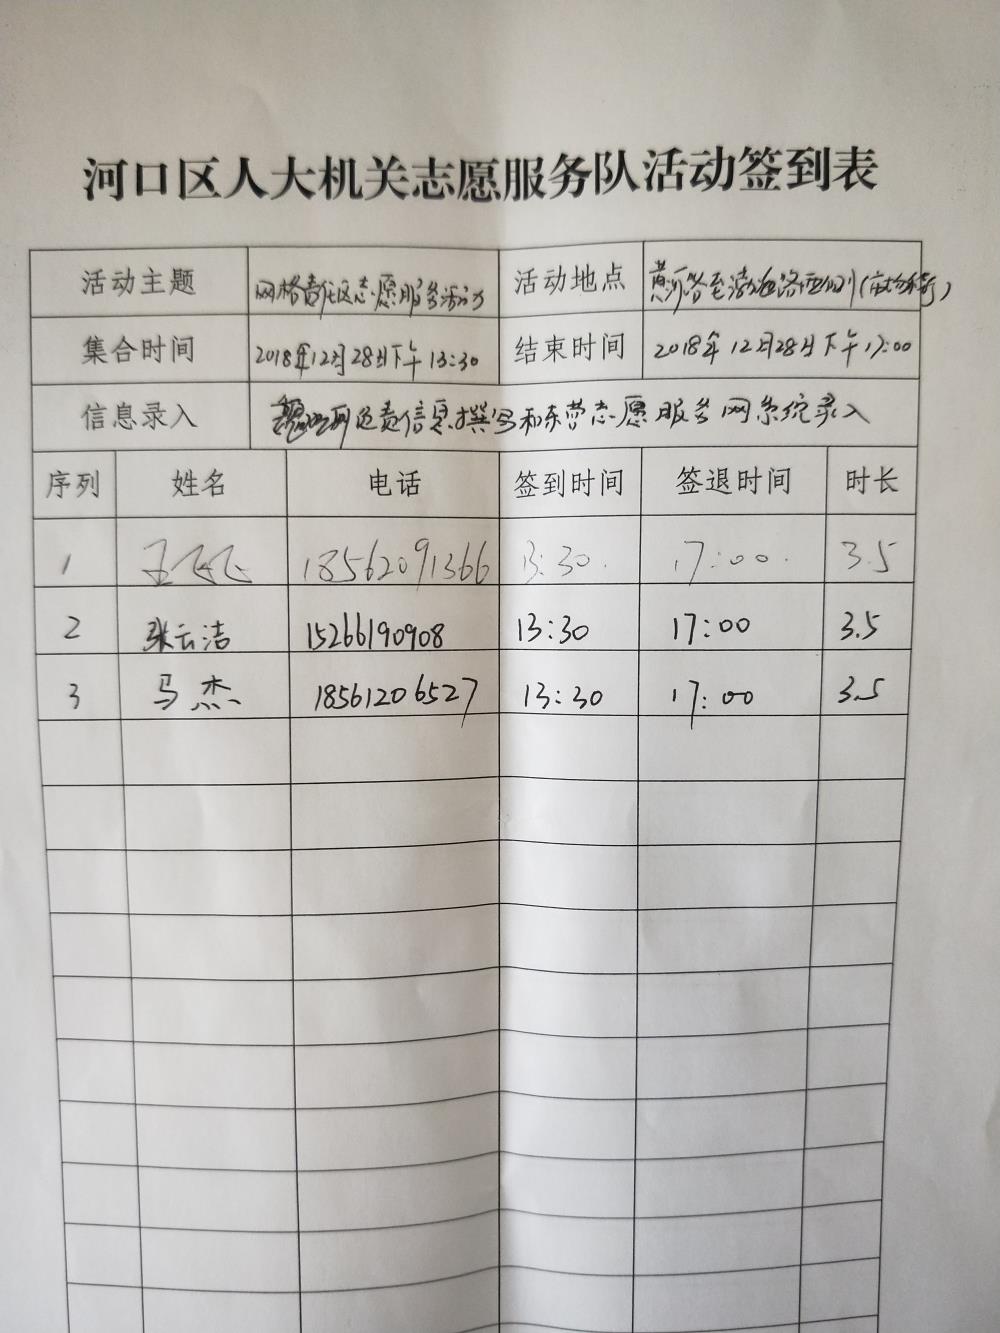 河口区人大机关志愿服务队活动签到表
活动主题 网格责任区志愿服务活动 活动地点 黄河路至渤海路西侧
集合时间 2018年12月28日下午13:30 结束时间 2018年12月28日下午17:00
信息录入 负责信息撰写和东营志愿服务网系统录入
序列 姓名 电话 签到时间 签退时间 时长
1 王飞飞 18562091366 13:30. 17:00. 3.5
2 张云洁 15266190908 13:30 17:00 3.5
3 马杰 18561206527 13:30 17:00 3.5